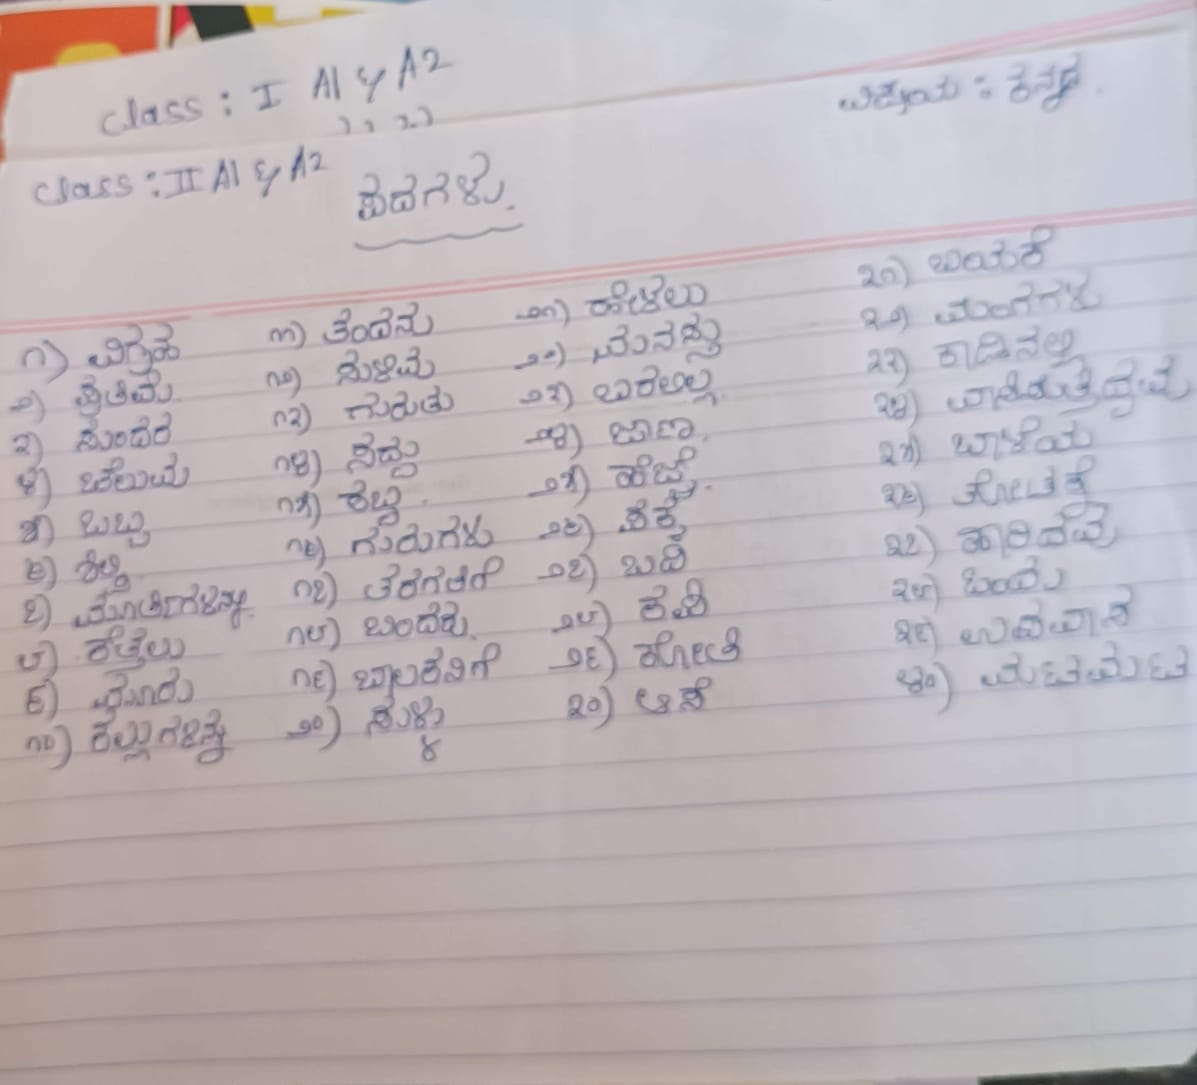 Class : I A1 & A2
ವಿಷಯ : ಕನ್ನಡ.
Class : II A1 & A2
ಪದಗಳು.
೧) ವಿಗ್ರಹ
೨) ಪ್ರತಿಮೆ
೩) ಸುಂದರ
೪) ಚೆಲುವ
೫) ಒಬ್ಬ
೬) ಶಿಲ್ಪಿ
೭) ಮೂರ್ತಿಗಳನ್ನು
೮) ಕೆತ್ತಲು
೯) ಮೂರು
೧೦) ಕಲ್ಲುಗಳನ್ನು
೧೧) ತಂದನು
೧೨) ಸುಳಿವು
೧೩) ಗುರುತು
೧೪) ಸದ್ದು
೧೫) ಶಬ್ದ.
೧೬) ಗುರುಗಳು
೧೭) ತರಗತಿಗೆ
೧೮) ಬಂದರು.
೧೯) ಬಾಲಕನಿಗೆ
೨೦) ಸುಳ್ಳು
೨೧) ಹೇಳಲು
೨೨) ಮನಸ್ಸು
೨೩) ಬರಲಿಲ್ಲ.
೨೪) ಜಾಣ.
೨೫) ಹೆಜ್ಜೆ.
೨೬) ಶಕ್ತಿ
೨೭) ಬದಿ
೨೮) ಕಪಿ
೨೯) ಕೋತಿ
೩೦) ಆಸೆ
೩೧) ಬಯಕೆ
೩೨) ಮಂಗಗಳು
೩೩) ಕಾಡಿನಲ್ಲಿ
೩೪) ವಾಸಿಸುತ್ತಿದ್ದವು
೩೫) ಬಾಳೆಯ
೩೬) ತೋಟಕ್ಕೆ
೩೭) ಹಾರಿದವು
೩೮) ಹಿಂಡು
೩೯) ಉಪವಾಸ
೪೦) ಮಟಮಟ